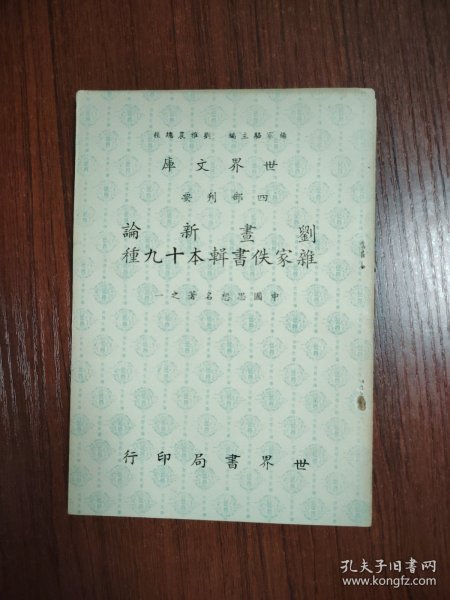 楊家駱主編 劉雅農總校
世界文庫
四部刊要
劉晝新論
雜家佚書輯本十九種
中國思想名著之一
世界書局印行
孔夫子旧书网
www.kongfz.com